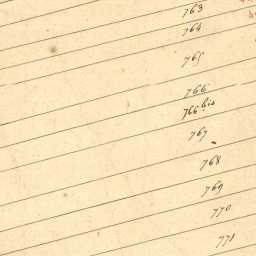 763
764
765
766
766 bis
767
768
769
770
771